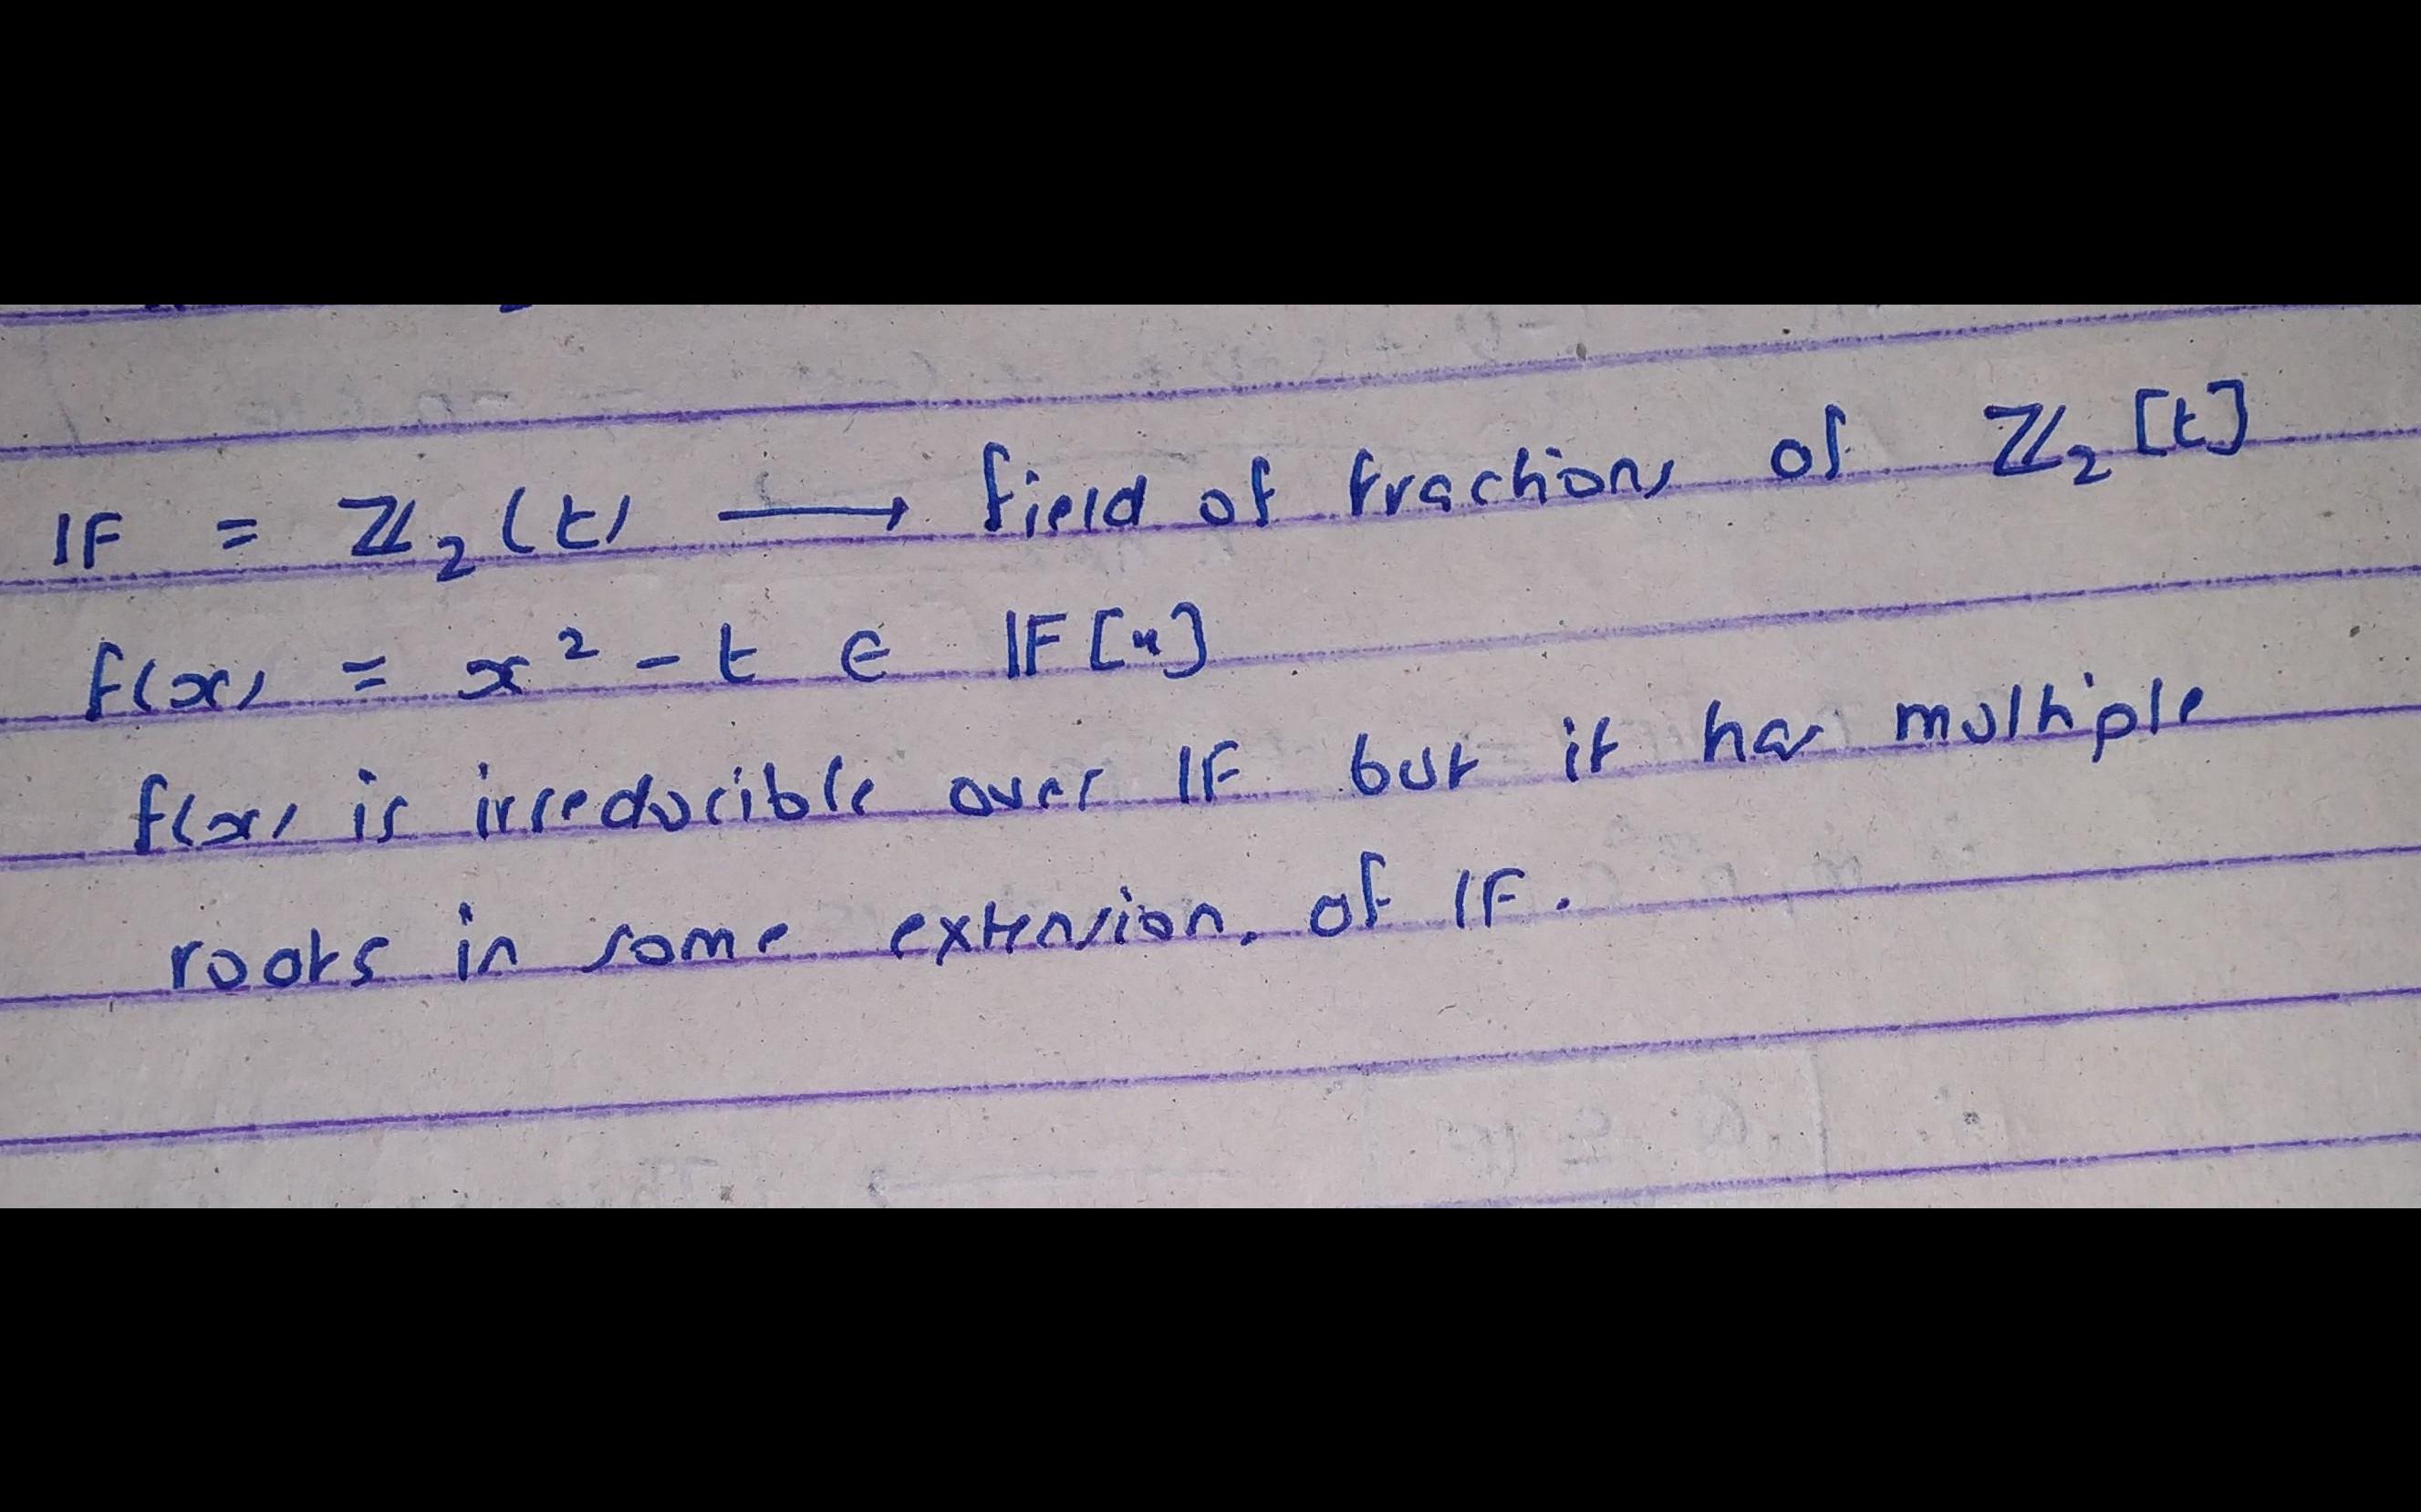 IF = ℤ₂(t) ⟶ field of fractions of ℤ₂[t]
f(x) = x² - t ∈ IF[x]
f(x) is irreducible over IF but it has multiple
roots in some extension. of IF.